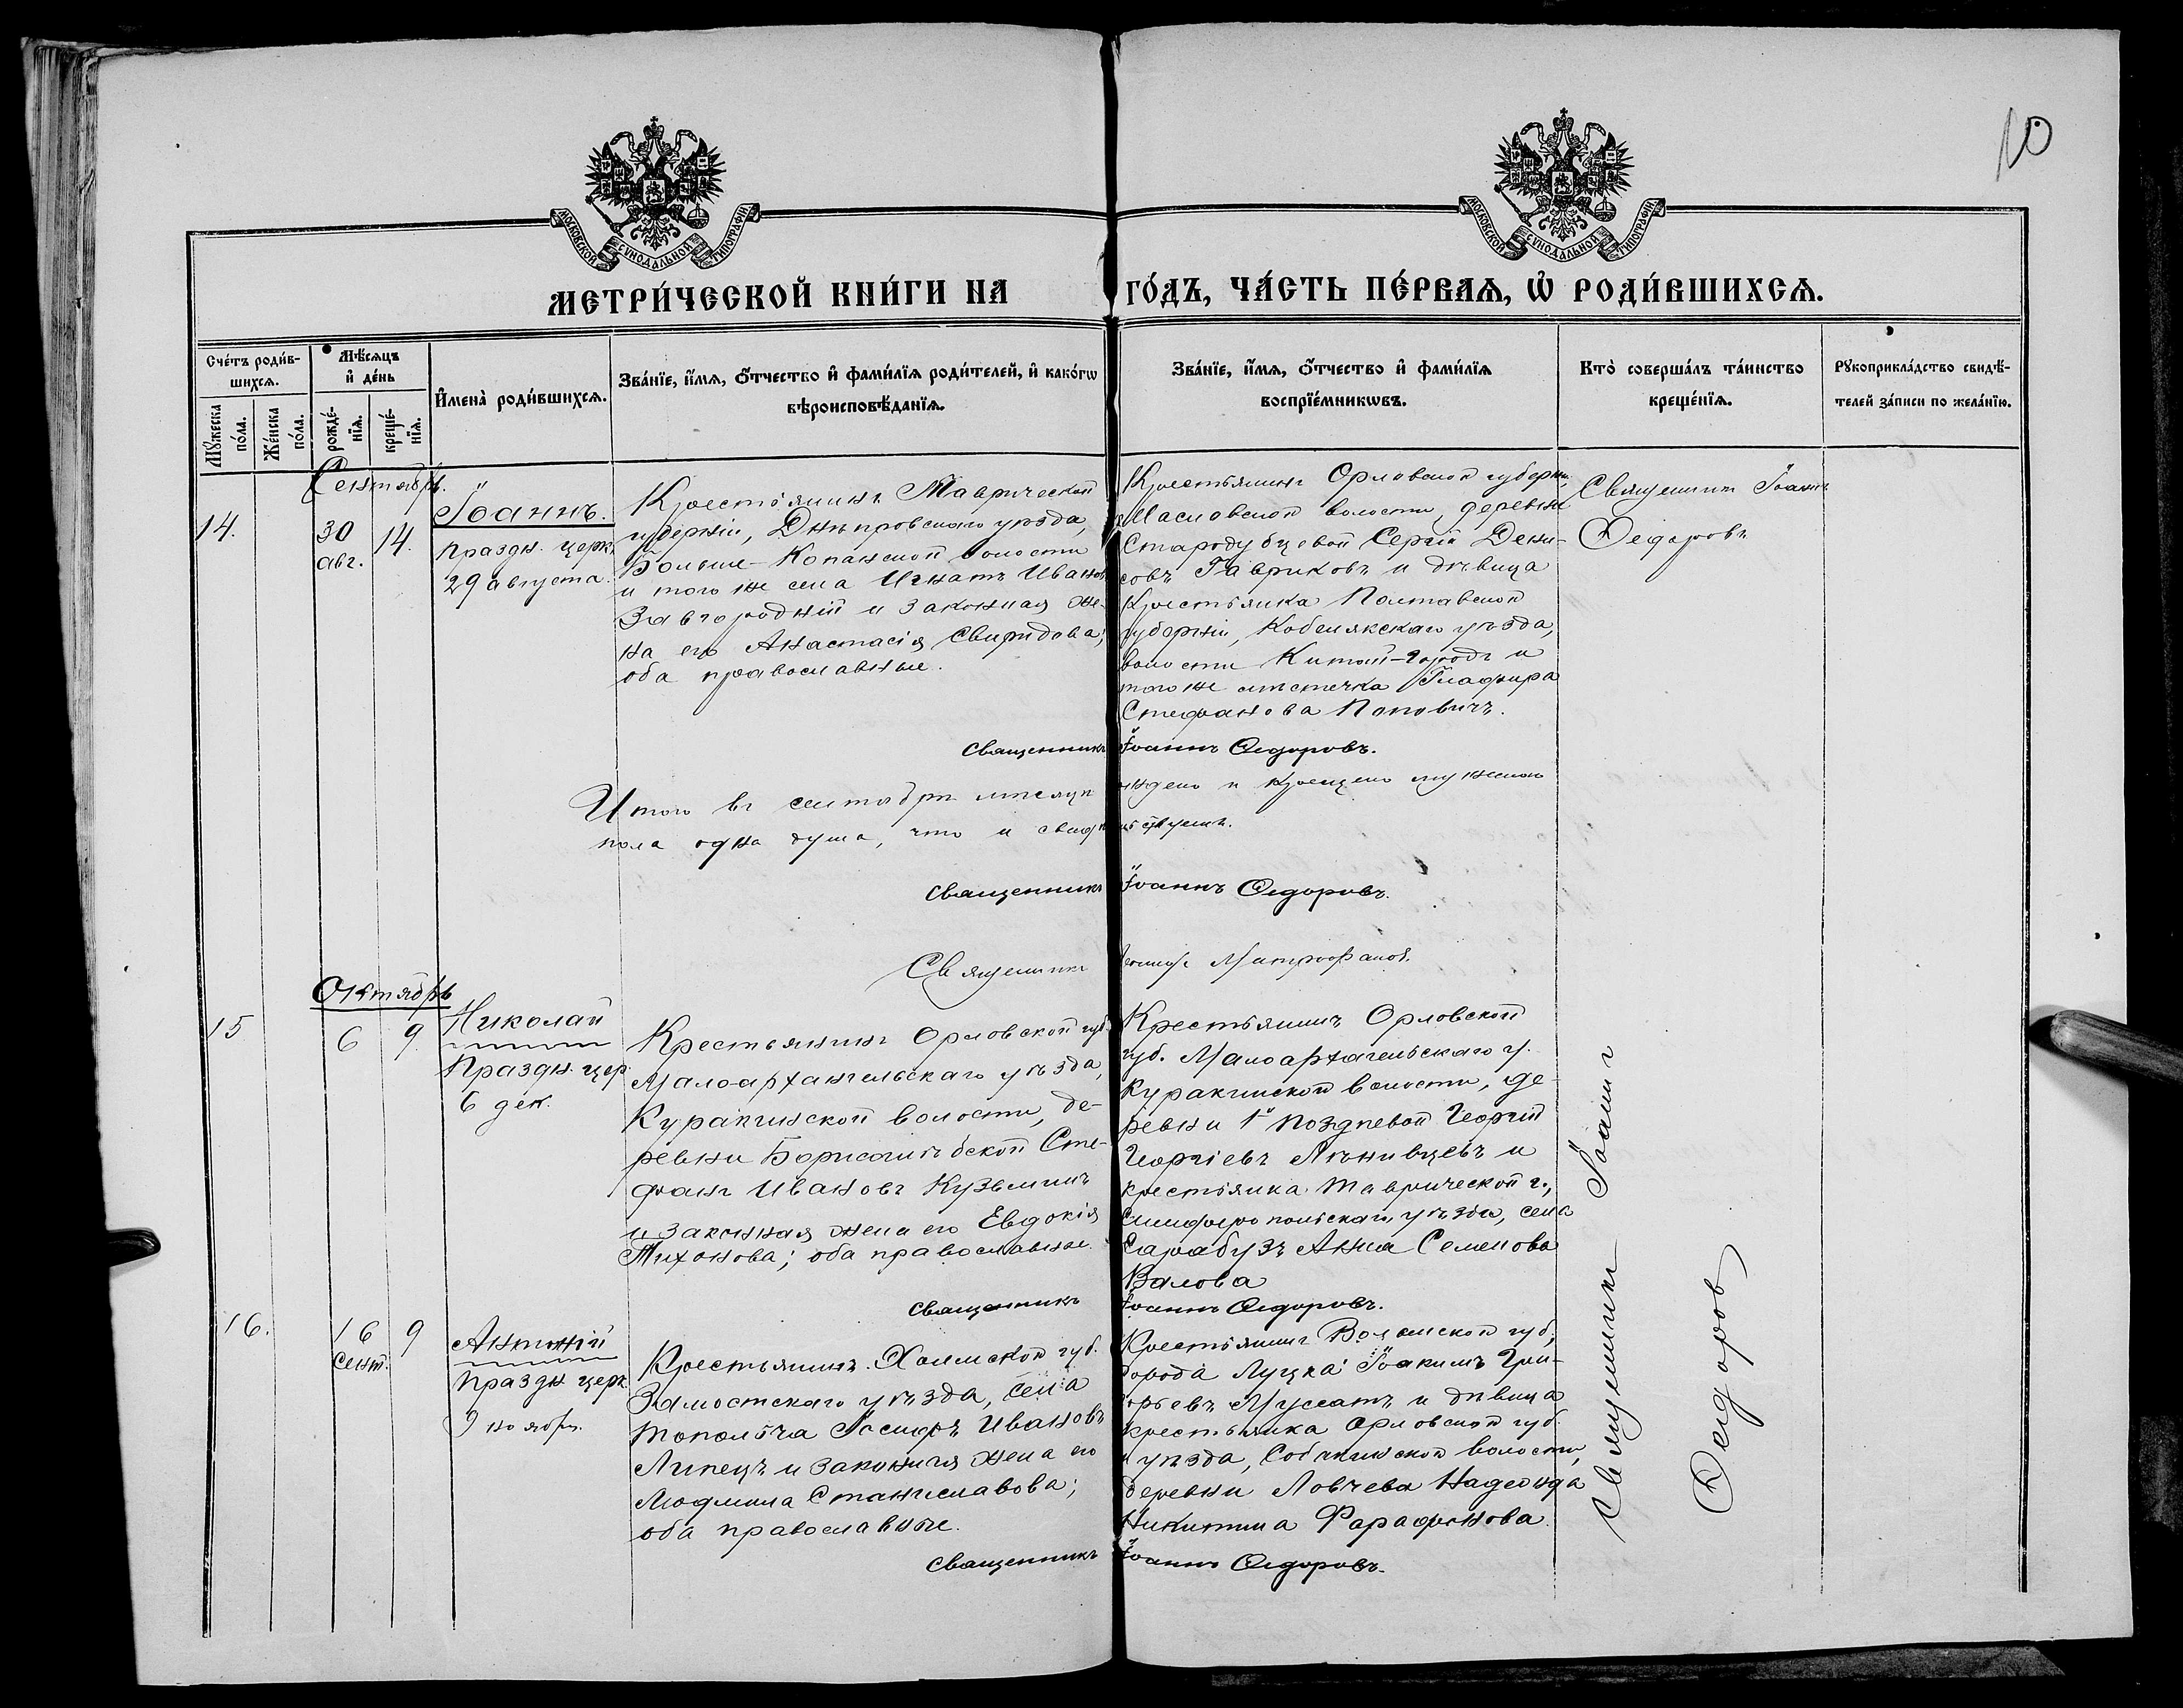 10
МОСКОВСКОЙ СѴНОДАЛЬНОЙ ТИПОГРАФІИ
МОСКОВСКОЙ СѴНОДАЛЬНОЙ ТИПОГРАФІИ
МЕТРИ́ЧЕСКОЙ КНИ́ГИ НА ГО́ДЪ, ЧА́СТЬ ПЕ́РВАѦ, Ѡ҆ РОДИ́ВШИХСѦ.
Счетъ роди́в-
шихсѧ.
Мꙋжеска по́ла.
Же́нска по́ла.
Мѣ́сѧцъ
и҆ де́нь
рожде́-
нїѧ.
креще́-
нїѧ.
И҆мена̀ роди́вшихсѧ.
Зва́нїе, и҆́мѧ, ѻ҆́тчество и҆ фами́лїѧ роди́телей, и҆ како́гѡ
вѣроисповѣ́данїѧ.
Зва́нїе, и҆́мѧ, ѻ҆́тчество и҆ фами́лїѧ
воспрїе́мникѡвъ.
Кто̀ соверша́лъ та́инство
креще́нїѧ.
Рꙋкоприкла́дство свидѣ́-
телей за́писи по жела́нїю.
Сентябрь.
14.
30
авг.
14.
Іоаннъ.
Праздн. церк.
29 августа.
Крестьянинъ Таврической
губерніи, Днѣпровскаго уѣзда,
Больше-Копанской волости
и того же села Игнатъ Иванов
Завгородній и законная же-
на его Анастасія Свиридова;
оба православные.
Крестьянинъ Орловской губерніи,
Масловской волости, деревни
Стародубцевой Сергій Дени-
совъ Гавриковъ и дѣвица
Крестьянка Полтавской
губерніи, Кобелякскаго уѣзда,
волости Китай-городъ и
того же мѣстечка Глафира
Стефанова Поповичъ.
Священникъ Іоаннъ
Ѳедоровъ
Священникъ Іоаннъ Ѳедоровъ.
Итого въ сентябрѣ мѣсяцѣ рождено и крещено мужеского
пола одна душа, что и свидѣтельствуемъ.
Священникъ Іоаннъ Ѳедоровъ.
Священникъ Митрофанов.
Октябрь
15
6
9
Николай
Праздн. цер.
6 дек.
Крестьянинъ Орловской губ.
Малоархангельскаго уѣзда,
Куракинской волости, де-
ревни Борисоглѣбской Сте-
фанъ Ивановъ Кузьминъ
и законная жена его Евдокія
Тихонова; оба православные.
Крестьянинъ Орловской
губ. Малоархангельскаго у.
Куракинской волости, де-
ревни 1й Поздневой Георгій
Георгіевъ Лѣнивцевъ и
крестьянка Таврической г.,
Симферопольскаго уѣзда, села
Сарабузъ Анна Семенова
Валова
Священникъ Іоаннъ Ѳедоровъ.
16.
16
сент.
9
Антоній
Праздн. церк.
9 ноября.
Крестьянинъ Холмской губ.
Замостскаго уѣзда, села
Топольча Іосифъ Ивановъ
Липецъ и законная жена его
Людмила Станиславова;
оба православные.
Крестьянинъ Волынской губ,
города Луцка Іоакимъ Григ-
орьевъ Муссатъ и дѣвица
крестьянка Орловской губ.
и уѣзда, Собакинской волости,
деревни Ловчева Надежда
Никитина Фарафонова.
Священникъ Іоаннъ
Ѳедоров
Священникъ Іоаннъ Ѳедоровъ.